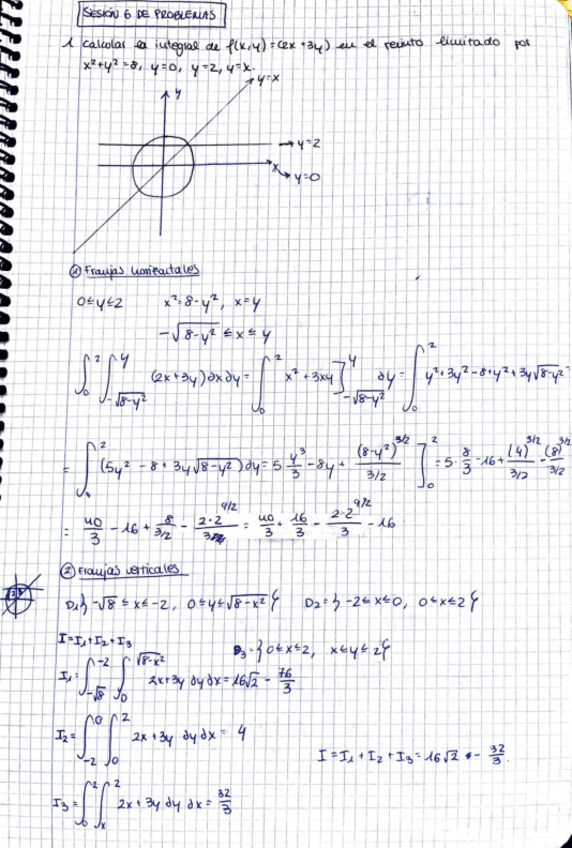 SESIÓN 6 DE PROBLEMAS
1. Calcular la integral de f(x,y)=(2x+3y) en el recinto limitado por
x²+y²=8, y=0, y=2, y=x.
y=x
y
→ y=2
x
→ y=0
① Franjas horizontales
0≤y≤2 x²=8-y², x=y
-√(8-y²) ≤ x ≤ y
∫₀² ∫_{-√(8-y²)}^{y} (2x+3y) dx dy = ∫₀² x²+3xy]_{-√(8-y²)}^{y} dy = ∫₀² y²+3y²-8+y²+3y√(8-y²)
= ∫₀² (5y²-8+3y√(8-y²)) dy = 5 y³/3 - 8y + (8-y²)^{3/2}/(3/2) ]₀² = 5·8/3 - 16 + (4)^{3/2}/(3/2) - (8)^{3/2}/(3/2)
= 40/3 - 16 + 8/(3/2) - 2·2^{9/2}/3 = 40/3 + 16/3 - 2·2^{9/2}/3 - 16
② Franjas verticales
D₁{ -√8 ≤ x ≤ -2, 0≤y≤√(8-x²) } D₂={ -2≤x≤0, 0≤x≤2 }
I=I₁+I₂+I₃
D₃={ 0≤x≤2, x≤y≤2 }
I₁= ∫_{-√8}^{-2} ∫₀^{√(8-x²)} 2x+3y dy dx = 16√2 - 76/3
I₂= ∫_{-2}^{0} ∫₀² 2x+3y dy dx = 4
I=I₁+I₂+I₃=16√2 - 32/3.
I₃= ∫₀² ∫ₓ² 2x+3y dy dx = 32/3